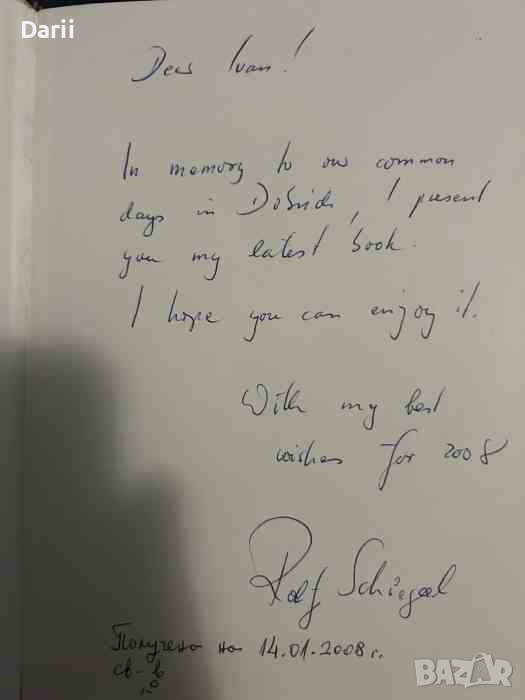 Darii
Dear Ivan!
In memory to our common
days in Dobrich, I present
you my latest book.
I hope you can enjoy it.
With my best
wishes for 2008
Rolf Schiegel
Получено на 14.01.2008 г.
св-в
BAZAR